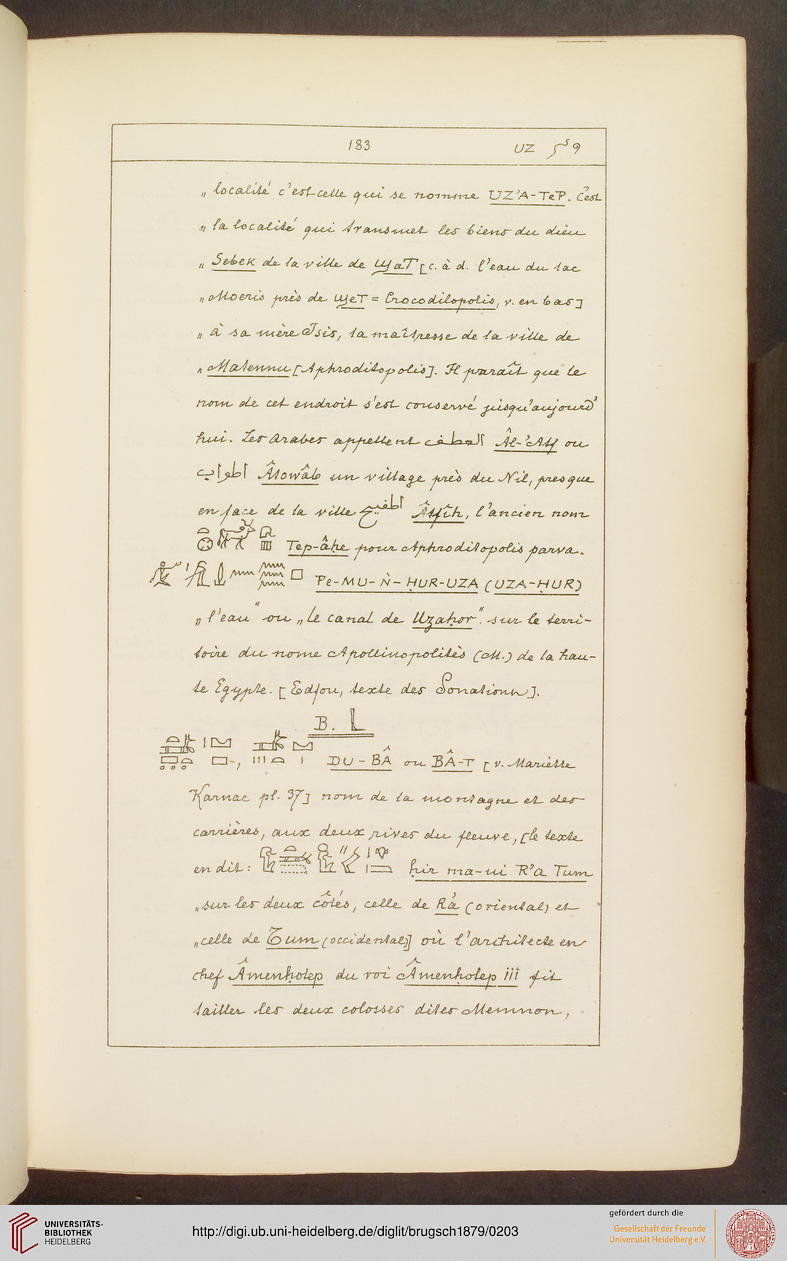 183 UZ
„ localité c'est celle qui se nomme UZ'A-TeP. C'est
„ la localité qui transmet les biens du dieu
„ Sebek de la ville de [c. à d. l'eau du lac
„ Moeris près de = Crocodilopolis, v. en bas]
„ à sa mère Isis, la maîtresse de la ville de
„ Matennu [Aphroditopolis]. Il paraît que le
nom de cet endroit s'est conservé jusqu'aujourd'
hui. Les Arabes appellent ou
اطواب Âtowâb un village près du Nil, presque
en face de la ville اطفيح Âtfîh, l'ancien nom
Tep-âhe pour Aphroditopolis parva.
Pe-MU-Ǹ-ḤUR-UZA (UZA-ḤUR)
„ l'eau" ou „le canal de Uzaḥor". sur le terri-
toire du nome Apollinopolitès (M.) de la hau-
te Egypte. [Edfou, texte des Donations].
B.
DU-BÂ ou BÂ-T [v. Mariette
Karnac pl. 37] nom de la montagne et des
carrières, aux deux rives du fleuve, [le texte
en dit: ḥir ma-ui R'a Tum
„sur les deux côtés, celle de Râ (oriental) et
„celle de Tum (occidental)] où l'architecte en
chef Âmenḥotep du roi Âmenḥotep III fit
tailler les deux colosses dites Memnon,
UNIVERSITÄTS-
BIBLIOTHEK
HEIDELBERG
http://digi.ub.uni-heidelberg.de/diglit/brugsch1879/0203
gefördert durch die
Gesellschaft der Freunde
Universität Heidelberg e.V.